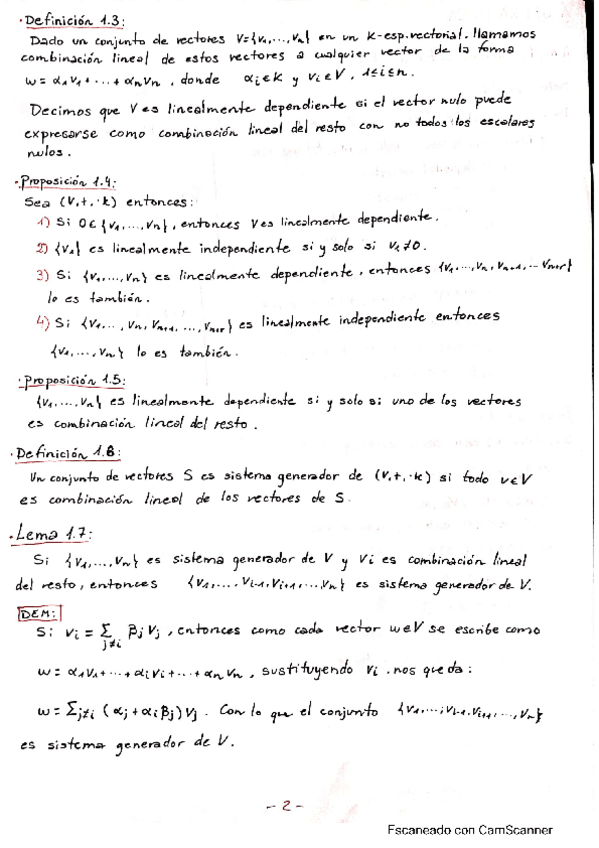 · Definición 1.3:
Dado un conjunto de vectores V={v₁,...,vₙ} en un K-esp.vectorial. llamamos
combinación lineal de estos vectores a cualquier vector de la forma
w = α₁v₁+···+αₙvₙ , donde αᵢ∈K y vᵢ∈V , 1≤i≤n.
Decimos que V es linealmente dependiente si el vector nulo puede
expresarse como combinación lineal del resto con no todos los escalares
nulos.
· Proposición 1.4:
Sea (V,+,·k) entonces:
1) Si 0∈{v₁,...,vₙ}, entonces V es linealmente dependiente.
2) {v₁} es linealmente independiente si y solo si v₁≠0.
3) Si {v₁,...,vₙ} es linealmente dependiente, entonces {v₁,...,vₙ,vₙ₊₁,...vₙ₊ᵣ}
lo es también.
4) Si {v₁...,vₙ,vₙ₊₁,...,vₙ₊ᵣ} es linealmente independiente entonces
{v₁,...,vₙ} lo es también.
· Proposición 1.5:
{v₁,...,vₙ} es linealmente dependiente si y solo si uno de los vectores
es combinación lineal del resto.
· Definición 1.6:
Un conjunto de vectores S es sistema generador de (V,+,·k) si todo v∈V
es combinación lineal de los vectores de S.
· Lema 1.7:
Si {v₁,...,vₙ} es sistema generador de V y vᵢ es combinación lineal
del resto, entonces {v₁,...,vᵢ₋₁,vᵢ₊₁,...,vₙ} es sistema generador de V.
DEM:
Si vᵢ = Σ_{j≠i} βⱼvⱼ , entonces como cada vector w∈V se escribe como
w = α₁v₁+···+αᵢvᵢ+···+αₙvₙ , sustituyendo vᵢ , nos queda:
w = Σ_{j≠i} (αⱼ+αᵢβⱼ)vⱼ . Con lo que el conjunto {v₁,...,vᵢ₋₁,vᵢ₊₁,...,vₙ}
es sistema generador de V.
- 2 -
Escaneado con CamScanner